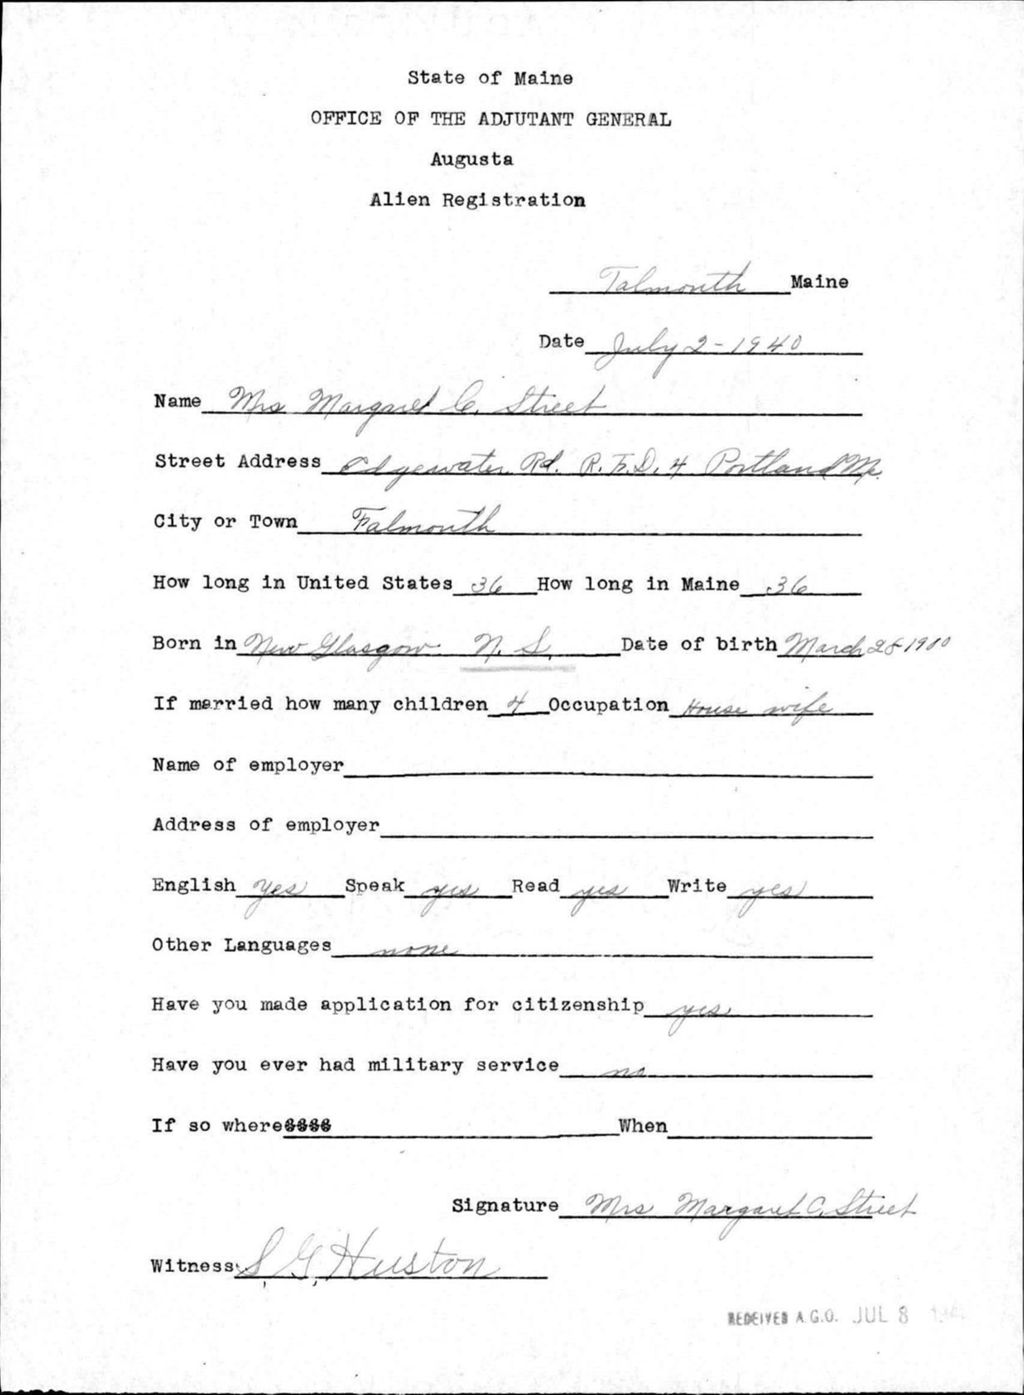 State of Maine
OFFICE OF THE ADJUTANT GENERAL
Augusta
Alien Registration
Falmouth Maine
Date July 2-1940
Name Mrs Margaret C. Street
Street Address Edgewater Rd. R.F.D. 4 Portland Me.
City or Town Falmouth
How long in United States 36 How long in Maine 36
Born in New Glasgow N. S. Date of birth March 28
If married how many children 4 Occupation House wife
Name of employer
Address of employer
English Yes Speak yes Read yes Write yes
Other Languages none
Have you made application for citizenship yes
Have you ever had military service no
If so where When
Signature Mrs Margaret C. Street
Witness S. G. Huston
RECEIVED A.G.O. JUL 8